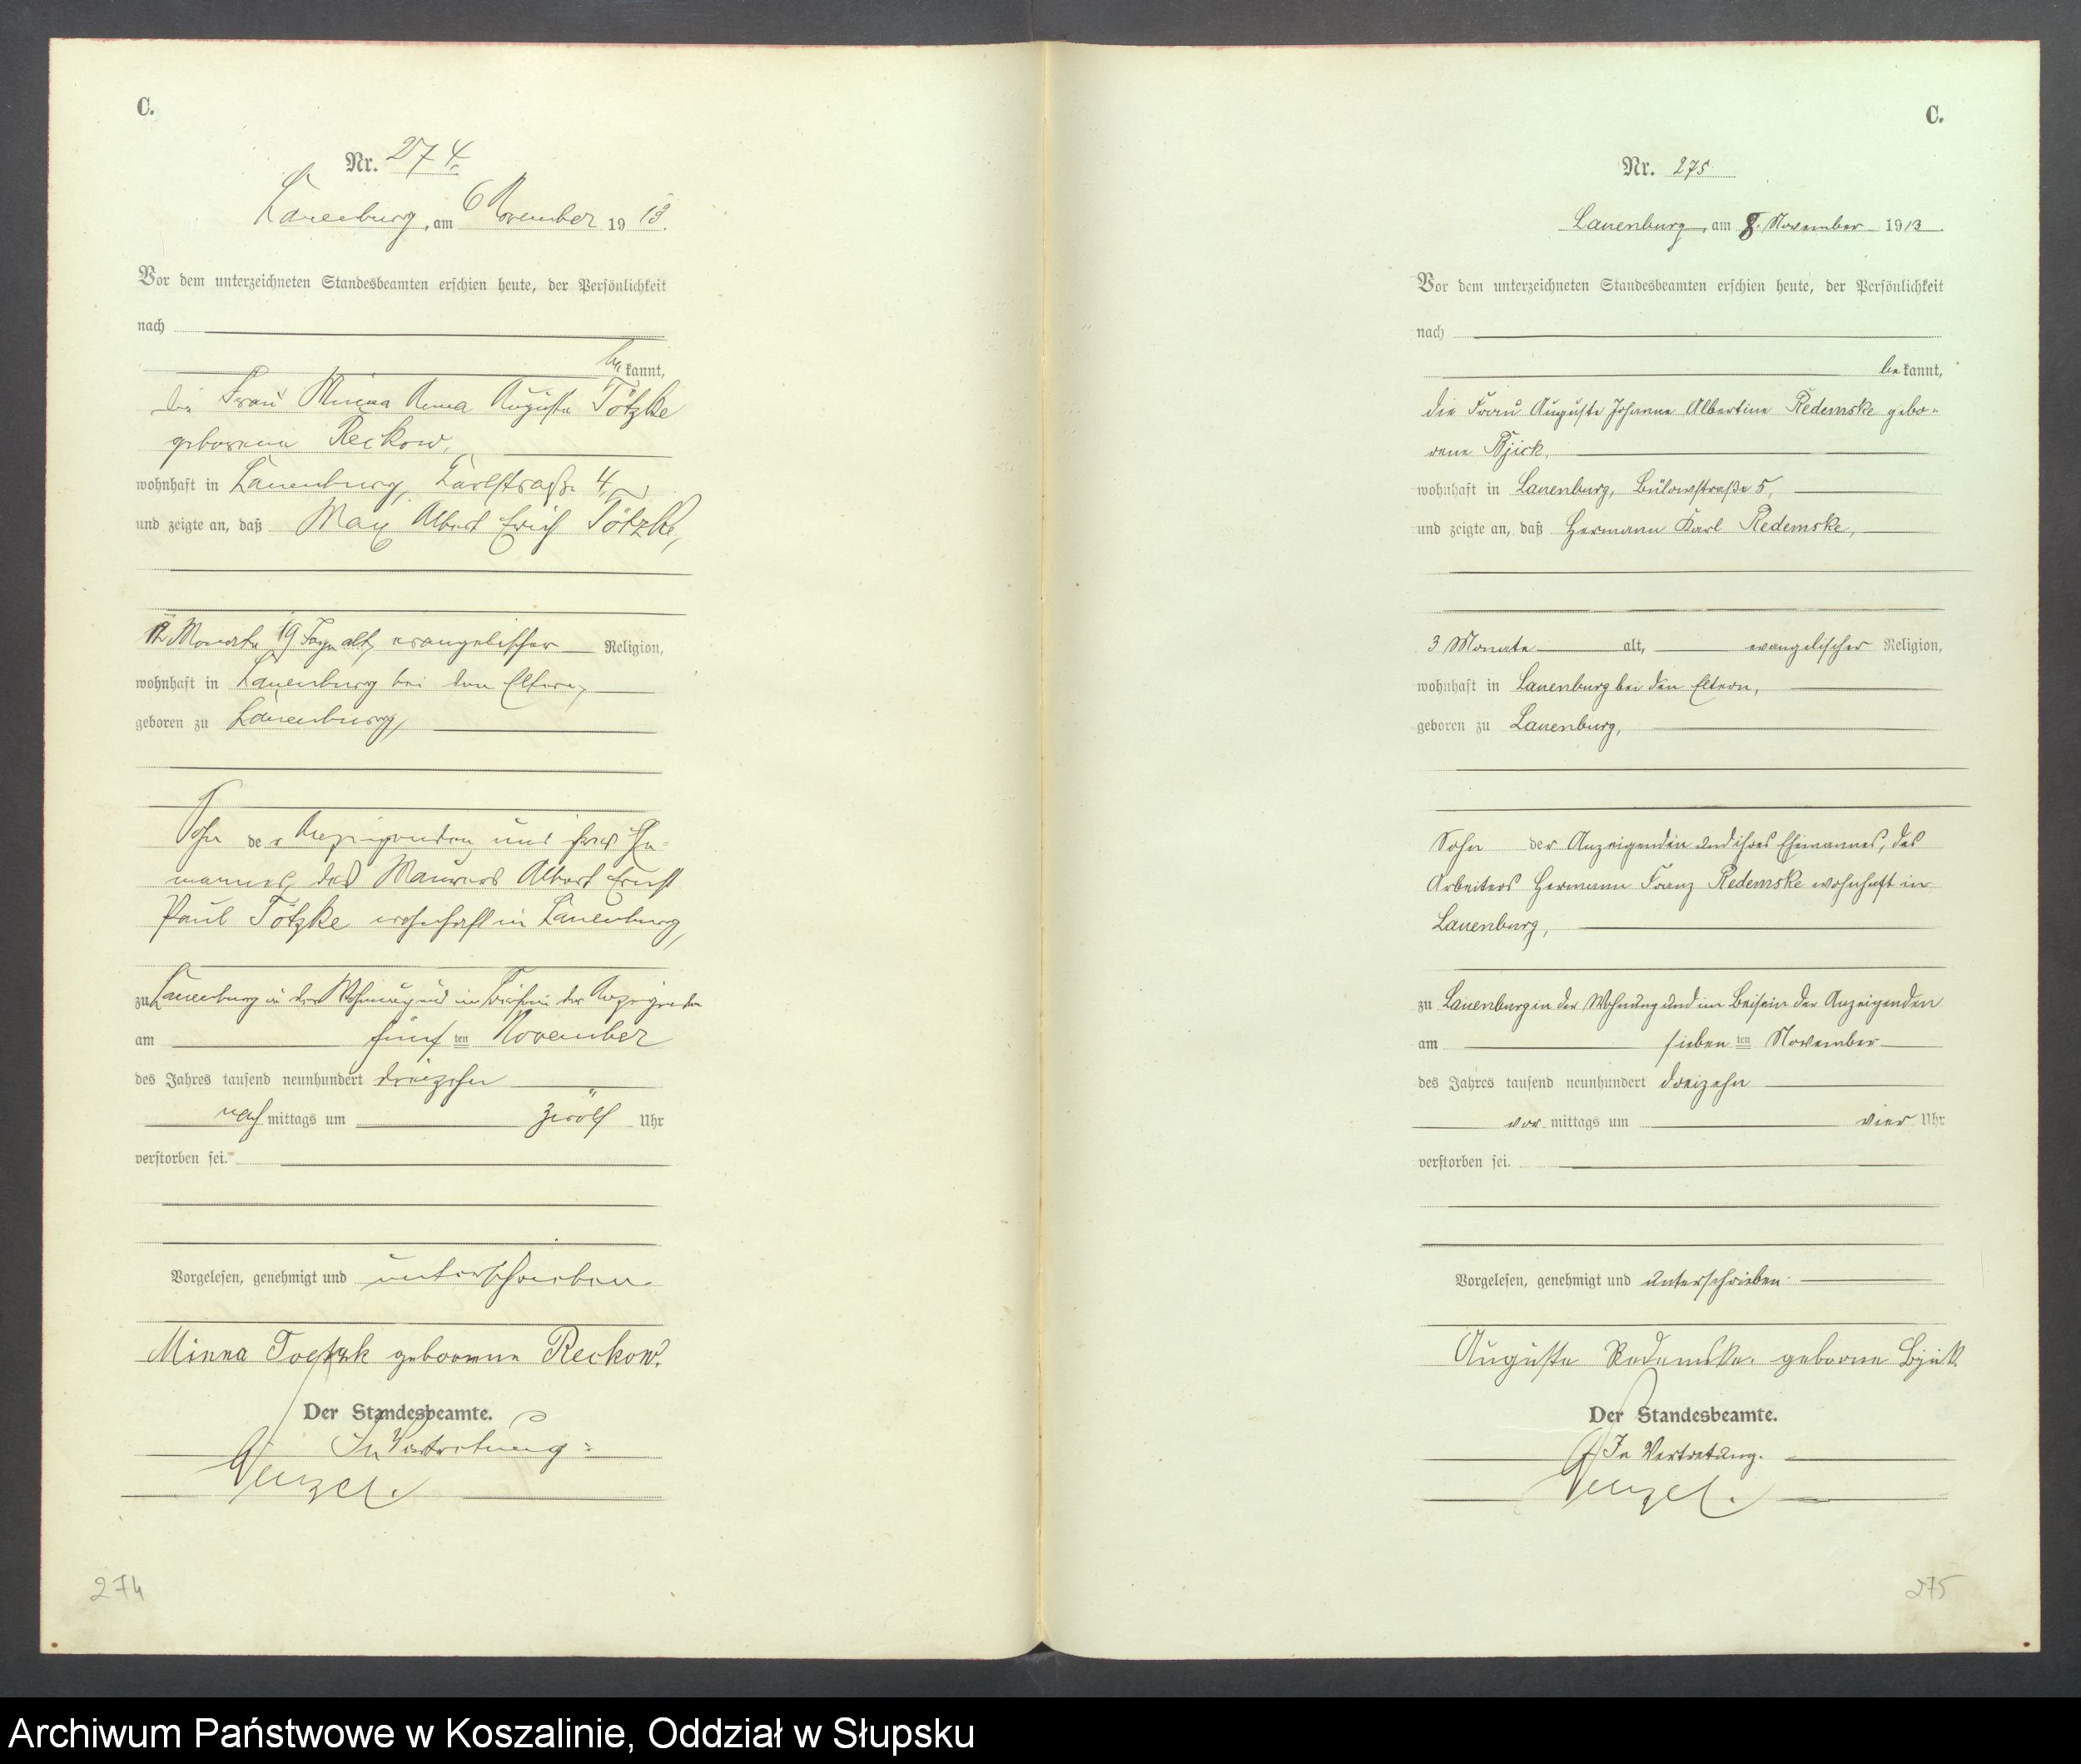 C.
Nr. 274.
Lauenburg, am 6 November 1913.
Vor dem unterzeichneten Standesbeamten erschien heute, der Persönlichkeit
nach
bekannt,
die Frau Minna Anna Auguste Tötzke
geborene Reckow,
wohnhaft in Lauenburg, Karlstraße 4,
und zeigte an, daß Max Albert Erich Tötzke,
Monate 19 Tage alt, evangelischer Religion,
wohnhaft in Lauenburg bei den Eltern,
geboren zu Lauenburg,
Sohn der Anzeigenden und ihres Ehe-
mannes, des Maurers Albert Ernst
Paul Tötzke wohnhaft in Lauenburg,
zu Lauenburg in der Wohnung und im Beisein der Anzeigenden
am fünf ten November
des Jahres tausend neunhundert dreizehn
nachmittags um zwölf Uhr
verstorben sei.
Vorgelesen, genehmigt und unterschrieben
Minna geborene Reckow.
Der Standesbeamte.
In Vertretung:
274
C.
Nr. 275
Lauenburg, am 8. November 1913.
Vor dem unterzeichneten Standesbeamten erschien heute, der Persönlichkeit
nach
bekannt,
die Frau Auguste Johanne Albertine Redemske gebo-
rene Bjick,
wohnhaft in Lauenburg, Bülowstraße 5,
und zeigte an, daß Hermann Karl Redemske,
3 Monate alt, evangelischer Religion,
wohnhaft in Lauenburg bei den Eltern,
geboren zu Lauenburg,
Sohn der Anzeigenden und ihres Ehemannes, des
Arbeiters Hermann Franz Redemske wohnhaft in
Lauenburg,
zu Lauenburg in der Wohnung und im Beisein der Anzeigenden
am sieben ten November
des Jahres tausend neunhundert dreizehn
vor mittags um vier Uhr
verstorben sei.
Vorgelesen, genehmigt und unterschrieben
Auguste Redemske geborne Bjick
Der Standesbeamte.
In Vertretung.
275
Archiwum Państwowe w Koszalinie, Oddział w Słupsku